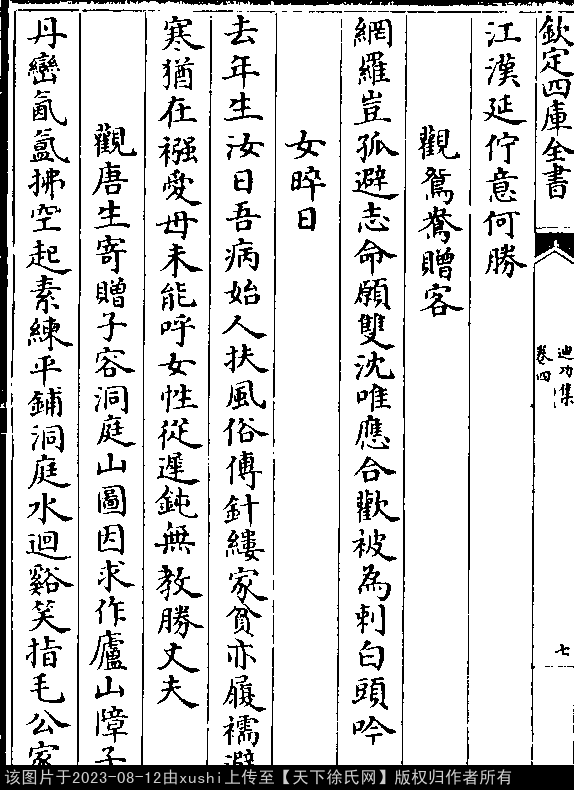 欽定四庫全書
迪功集
卷四
七
江漢延佇意何勝
觀鴛鴦贈客
網羅豈孤避志命願雙沈唯應合歡被為刺白頭吟
女晬日
去年生汝日吾病始人扶風俗傅針縷家貧亦履襦
寒猶在襁愛母未能呼女性從遲鈍無教勝丈夫
觀唐生寄贈子容洞庭山圖因求作廬山障子
丹巒氤氳拂空起素練平鋪洞庭水迴谿笑指毛公
该图片于2023-08-12由xushi上传至【天下徐氏网】版权归作者所有